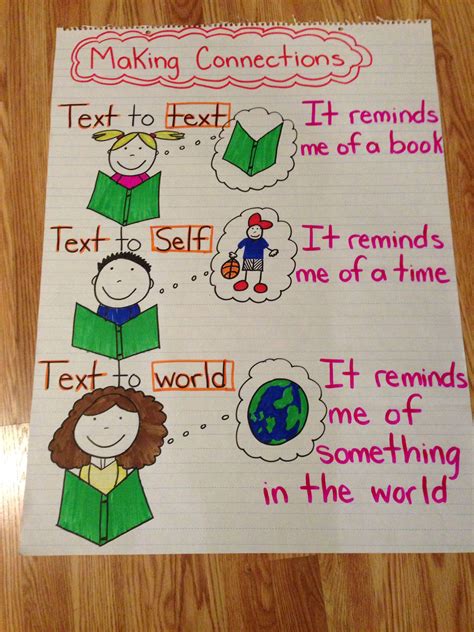 Making Connections
Text to text
It reminds
me of a book
Text to Self
It reminds
me of a time
Text to world
It reminds
me of
something
in the world